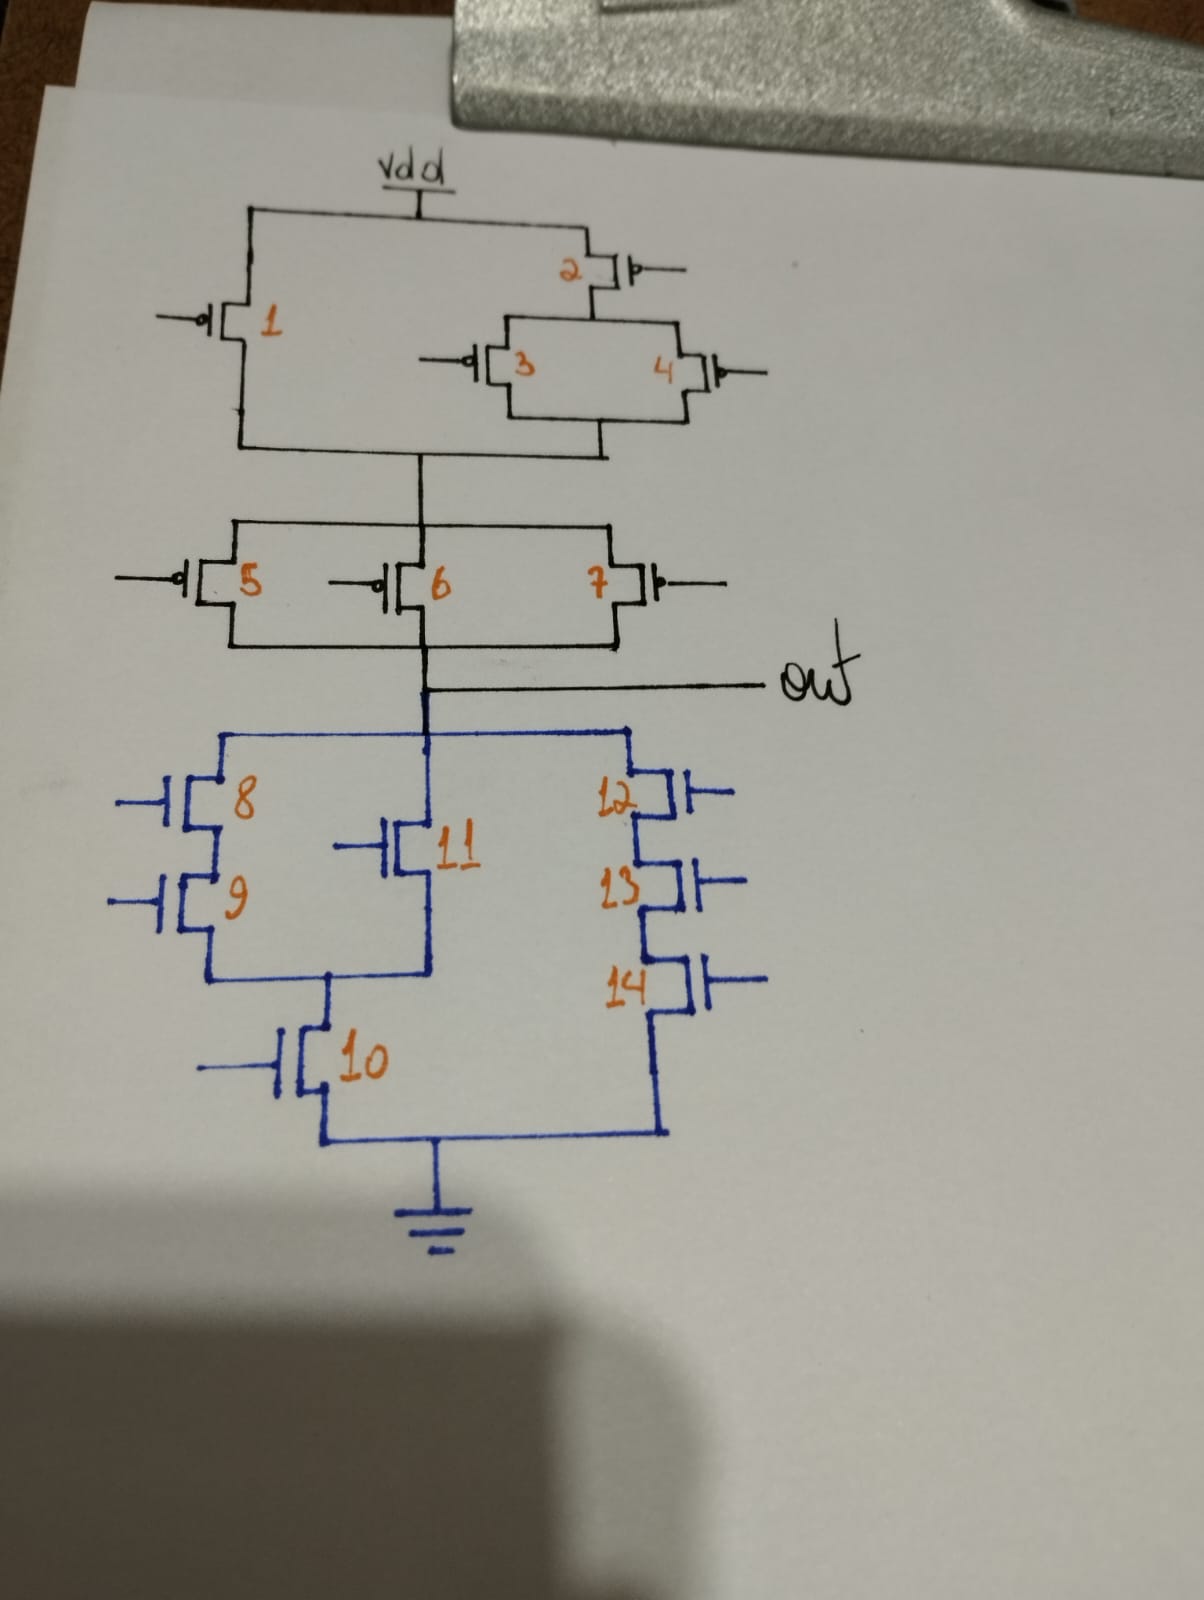 vdd
2
1
3 4
5 6 7
out
8 12
11
9 13
14
10